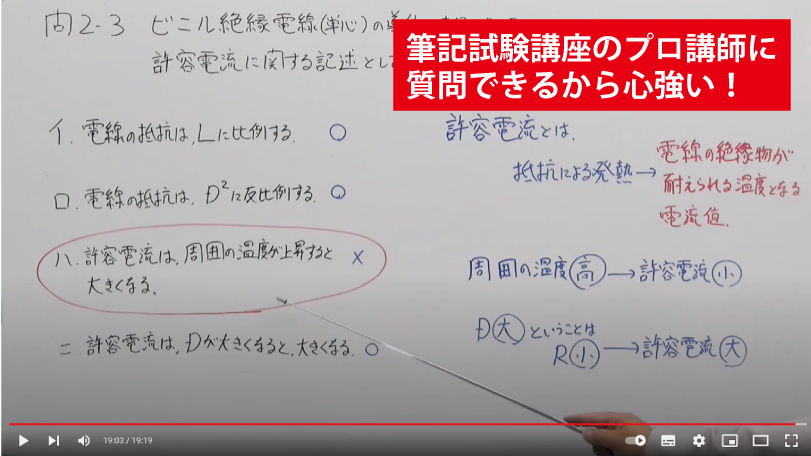 問2-3 ビニル絶縁電線(単心)の導
許容電流に関する記述とし
筆記試験講座のプロ講師に
質問できるから心強い！
イ. 電線の抵抗は, Lに比例する. ○
ロ. 電線の抵抗は, D²に反比例する. ○
ハ. 許容電流は, 周囲の温度が上昇すると ×
大きくなる.
ニ. 許容電流は, Dが大きくなると, 大きくなる. ○
許容電流とは.
抵抗による発熱→電線の絶縁物が
耐えられる温度となる
電流値.
周囲の温度高→許容電流小
D大ということは
R小→許容電流大
19:03 / 19:19